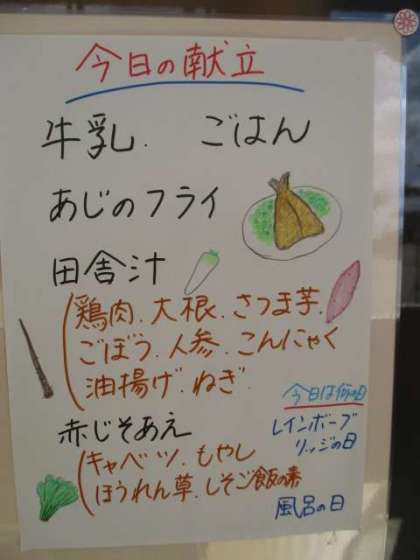 今日の献立
牛乳. ごはん
あじのフライ
田舎汁
鶏肉.大根.さつま芋.
ごぼう.人参.こんにゃく
油揚げ.ねぎ.
赤じそあえ
キャベツ.もやし
ほうれん草.しそご飯の素
今日は何の日
レインボーブ
リッジの日
風呂の日